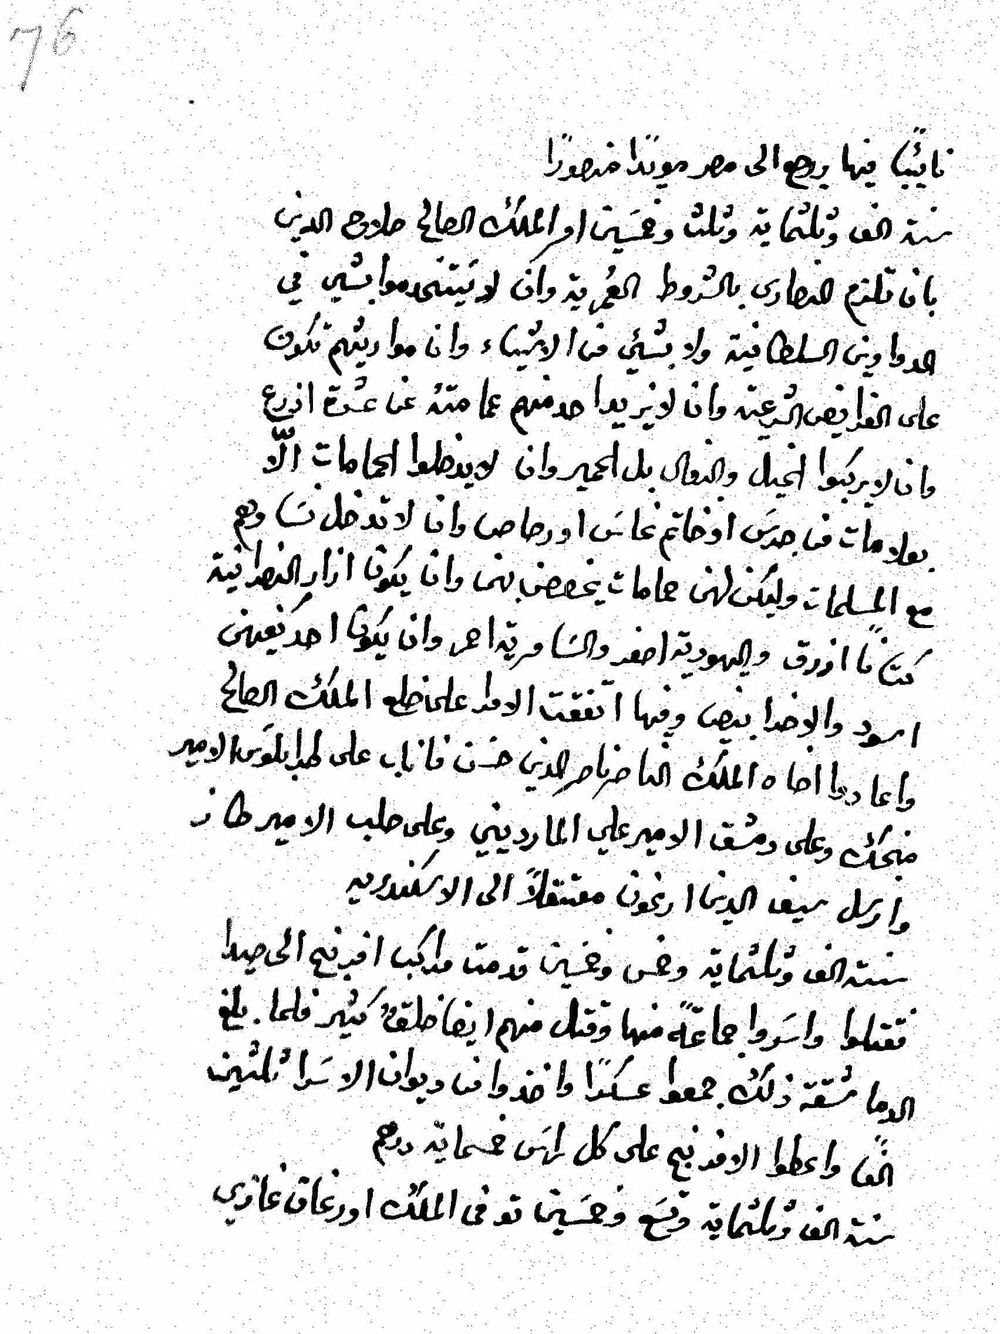 76
نائيًا فيها ورجع الى مصر مويدًا منصورًا
سنة الف وثلثماية وثلث وخمسين امر الملك الصالح صلاح الدين
بان تلتزم النصارى بالشروط العُمرية وان لا يستخدموا بشي في
الدواوين السلطانية ولا بشئي من الاشياء وان مواريثهم تكون
على الفرايض الشرعية وان لا يزيد احد منهم عمامته عن عشرة اذرع
وان لا يركبوا الخيل والبغال بل الحمير وان لا يدخلوا الحمامات الّا
بعلامات من جرس او خاتم نحاس او رصاص وان لا تدخل نساوهم
مع المسلمات وليكن لهن حمامات يخصصن بهن وان يكون ازار النصرانية
كتانًا ازرق واليهودية اصفر والسامرية احمر وان يكون احد خفيهن
اسود والاخر ابيض وفيها اتفقت الامرا على خلع الملك الصالح
واعادوا اخاه الملك الناصر ناصر الدين حسن فاناب على طرابلوس الامير
منجك وعلى دمشق الامير علي المارديني وعلى حلب الامير طاز
وارسل سيف الدين ارغون معتقلًا الى الاسكندرية
سنة الف وثلثماية وخمس وخمسين قدمت مراكب افرنج الى صيدا
فقتلوا واسروا جماعةً منها وقتل منهم ايضا خلقٌ كثير فلما بلغ
الدماشقة ذلك جمعوا عسكرًا واخذوا من ديوان الاسرا ثلثين
الفًا واعطوا الافرنج على كل راس خمسماية درهم
سنة الف وثلثماية وتسع وخمسين توفى الملك اورخان غازي